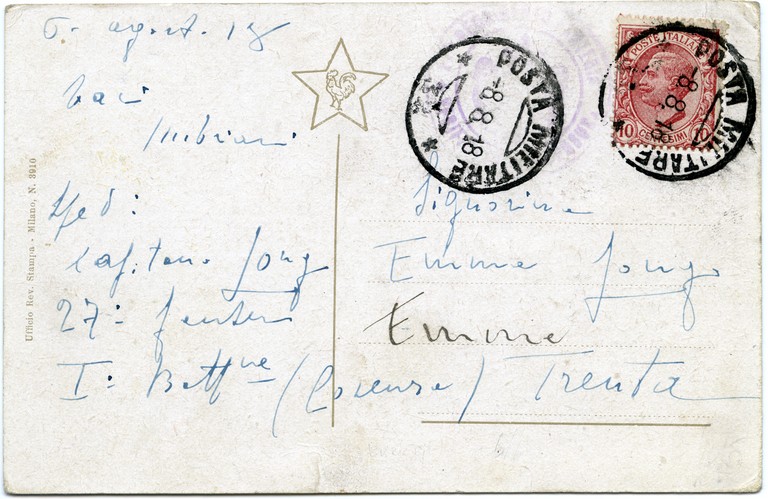 6. agost. 18
Baci
Sped:
Capitano Longo
27° fanteria
I° Batt.ne
Ufficio Rev. Stampa - Milano, N. 3910
POSTA MILITARE
8 8 18
POSTE ITALIANE
10 CENTESIMI 10
POSTA MILITARE
8 8 18
Signorina
Emma Longo
Emma
(Cosenza) Trenta